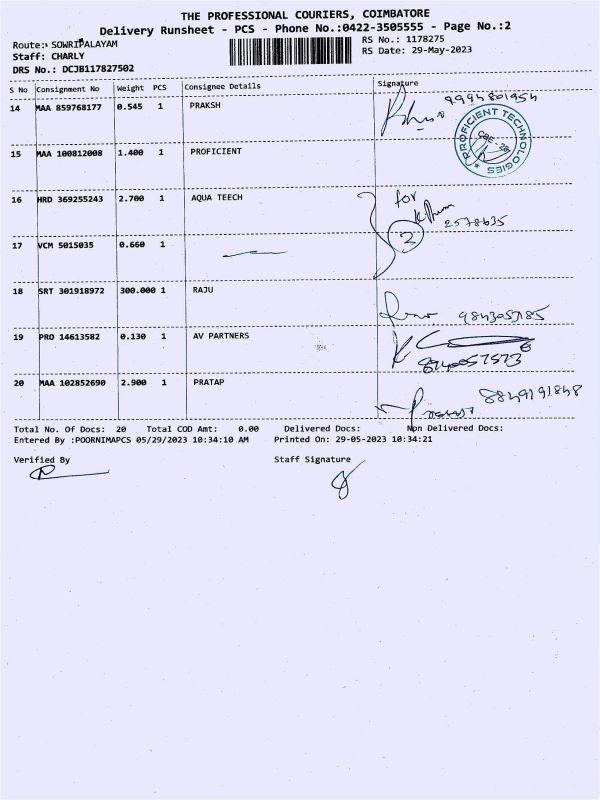 THE PROFESSIONAL COURIERS, COIMBATORE
Delivery Runsheet - PCS - Phone No.:0422-3505555 - Page No.:2
Route: SOWRIPALAYAM
RS No.: 1178275
Staff: CHARLY
RS Date: 29-May-2023
DRS No.: DCJB117827502
S No Consignment No Weight PCS Consignee Details Signature
14 MAA 859768177 0.545 1 PRAKSH 9994801954
15 MAA 100812008 1.400 1 PROFICIENT
PROFICIENT TECHNOLOGIES
CBE - 28
16 HRD 369255243 2.700 1 AQUA TEECH for
2578635
2
17 VCM 5015035 0.660 1
18 SRT 301918972 300.000 1 RAJU 9843053185
19 PRO 14613582 0.130 1 AV PARTNERS 8940057573
20 MAA 102852690 2.900 1 PRATAP 8849191848
Total No. Of Docs: 20 Total COD Amt: 0.00 Delivered Docs: Non Delivered Docs:
Entered By :POORNIMAPCS 05/29/2023 10:34:10 AM Printed On: 29-05-2023 10:34:21
Verified By Staff Signature